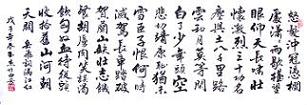 怒髮沖冠憑欄
處瀟雨歇抬望
眼仰天長嘯壯
懷激烈三十功名
塵與土八千里路
雲和月莫等閒
白了少年頭空
悲切靖康恥猶未
雪臣子恨何時
滅駕長車踏破
賀蘭山缺壯志飢
餐胡虜肉笑談渴
飲匈奴血待從頭
收拾舊山河朝
天闕 岳飛詞滿江紅
戊子年冬